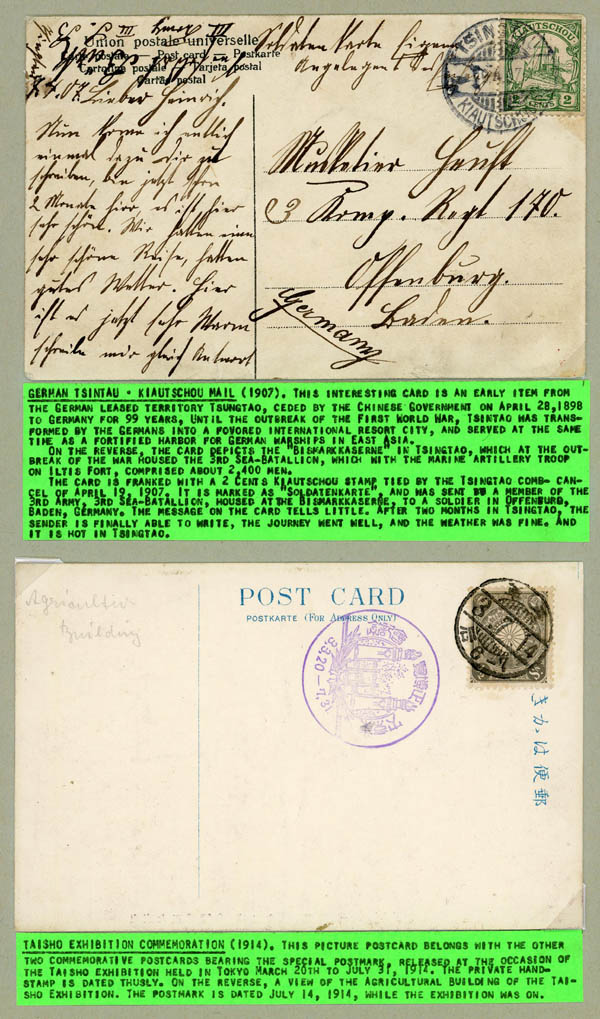 S. B. III Komp III
Union postale universelle
Post card — Postkarte
Cartolina postale — Tarjeta postal
Carta postal
Soldaten Karte Eigene
Angelegenh. des
KIAUTSCHOU
2 CENTS 2
TSINGTAU
KIAUTSCHOU
.07. Lieber Heinrich.
Nun komme ich entlich
einmal dazu Dir zu
schreiben, bin jetzt schon
2 Monate hier es ist hier
sehr schön. Wir hatten eine
sehr schöne Reise, hatten
gutes Wetter. Hier
ist es jetzt sehr Warm
schreibe mir gleich Antwort
Musketier Hauft
3 Komp. Regt 170.
Offenburg.
Baden.
Germany
GERMAN TSINTAU - KIAUTSCHOU MAIL (1907). THIS INTERESTING CARD IS AN EARLY ITEM FROM
THE GERMAN LEASED TERRITORY TSUNGTAO, CEDED BY THE CHINESE GOVERNMENT ON APRIL 28,1898
TO GERMANY FOR 99 YEARS, UNTIL THE OUTBREAK OF THE FIRST WORLD WAR, TSINTAO WAS TRANS-
FORMED BY THE GERMANS INTO A FOVORED INTERNATIONAL RESORT CITY, AND SERVED AT THE SAME
TIME AS A FORTIFIED HARBOR FOR GERMAN WARSHIPS IN EAST ASIA.
ON THE REVERSE, THE CARD DEPICTS THE "BISMARKKASERNE" IN TSINGTAO, WHICH AT THE OUT-
BREAK OF THE WAR HOUSED THE 3RD SEA-BATALLION, WHICH WITH THE MARINE ARTILLERY TROOP
ON ILTIS FORT, COMPRISED ABOUT 2,400 MEN.
THE CARD IS FRANKED WITH A 2 CENTS KIAUTSCHOU STAMP TIED BY THE TSINGTAO COMB- CAN-
CEL OF APRIL 19, 1907. IT IS MARKED AS "SOLDATENKARTE", AND WAS SENT BY A MEMBER OF THE
3RD ARMY, 3RD SEA-BATALLION, HOUSED AT THE BISMARKKASERNE, TO A SOLDIER IN OFFENBURG,
BADEN, GERMANY. THE MESSAGE ON THE CARD TELLS LITTLE. AFTER TWO MONTHS IN TSINGTAO, THE
SENDER IS FINALLY ABLE TO WRITE, THE JOURNEY WENT WELL, AND THE WEATHER WAS FINE. AND
IT IS HOT IN TSINGTAO.
Agriculture
Building
POST CARD
POSTKARTE (FOR ADDRESS ONLY)
3.3.20
きかは便郵
TAISHO EXHIBITION COMMEMORATION (1914). THIS PICTURE POSTCARD BELONGS WITH THE OTHER
TWO COMMEMORATIVE POSTCARDS BEARING THE SPECIAL POSTMARK, RELEASED AT THE OCCASION OF
THE TAISHO EXHIBITION HELD IN TOKYO MARCH 20TH TO JULY 31, 1914. THE PRIVATE HAND-
STAMP IS DATED THUSLY. ON THE REVERSE, A VIEW OF THE AGRICULTURAL BUILDING OF THE TAI-
SHO EXHIBITION. THE POSTMARK IS DATED JULY 14, 1914, WHILE THE EXHIBITION WAS ON.